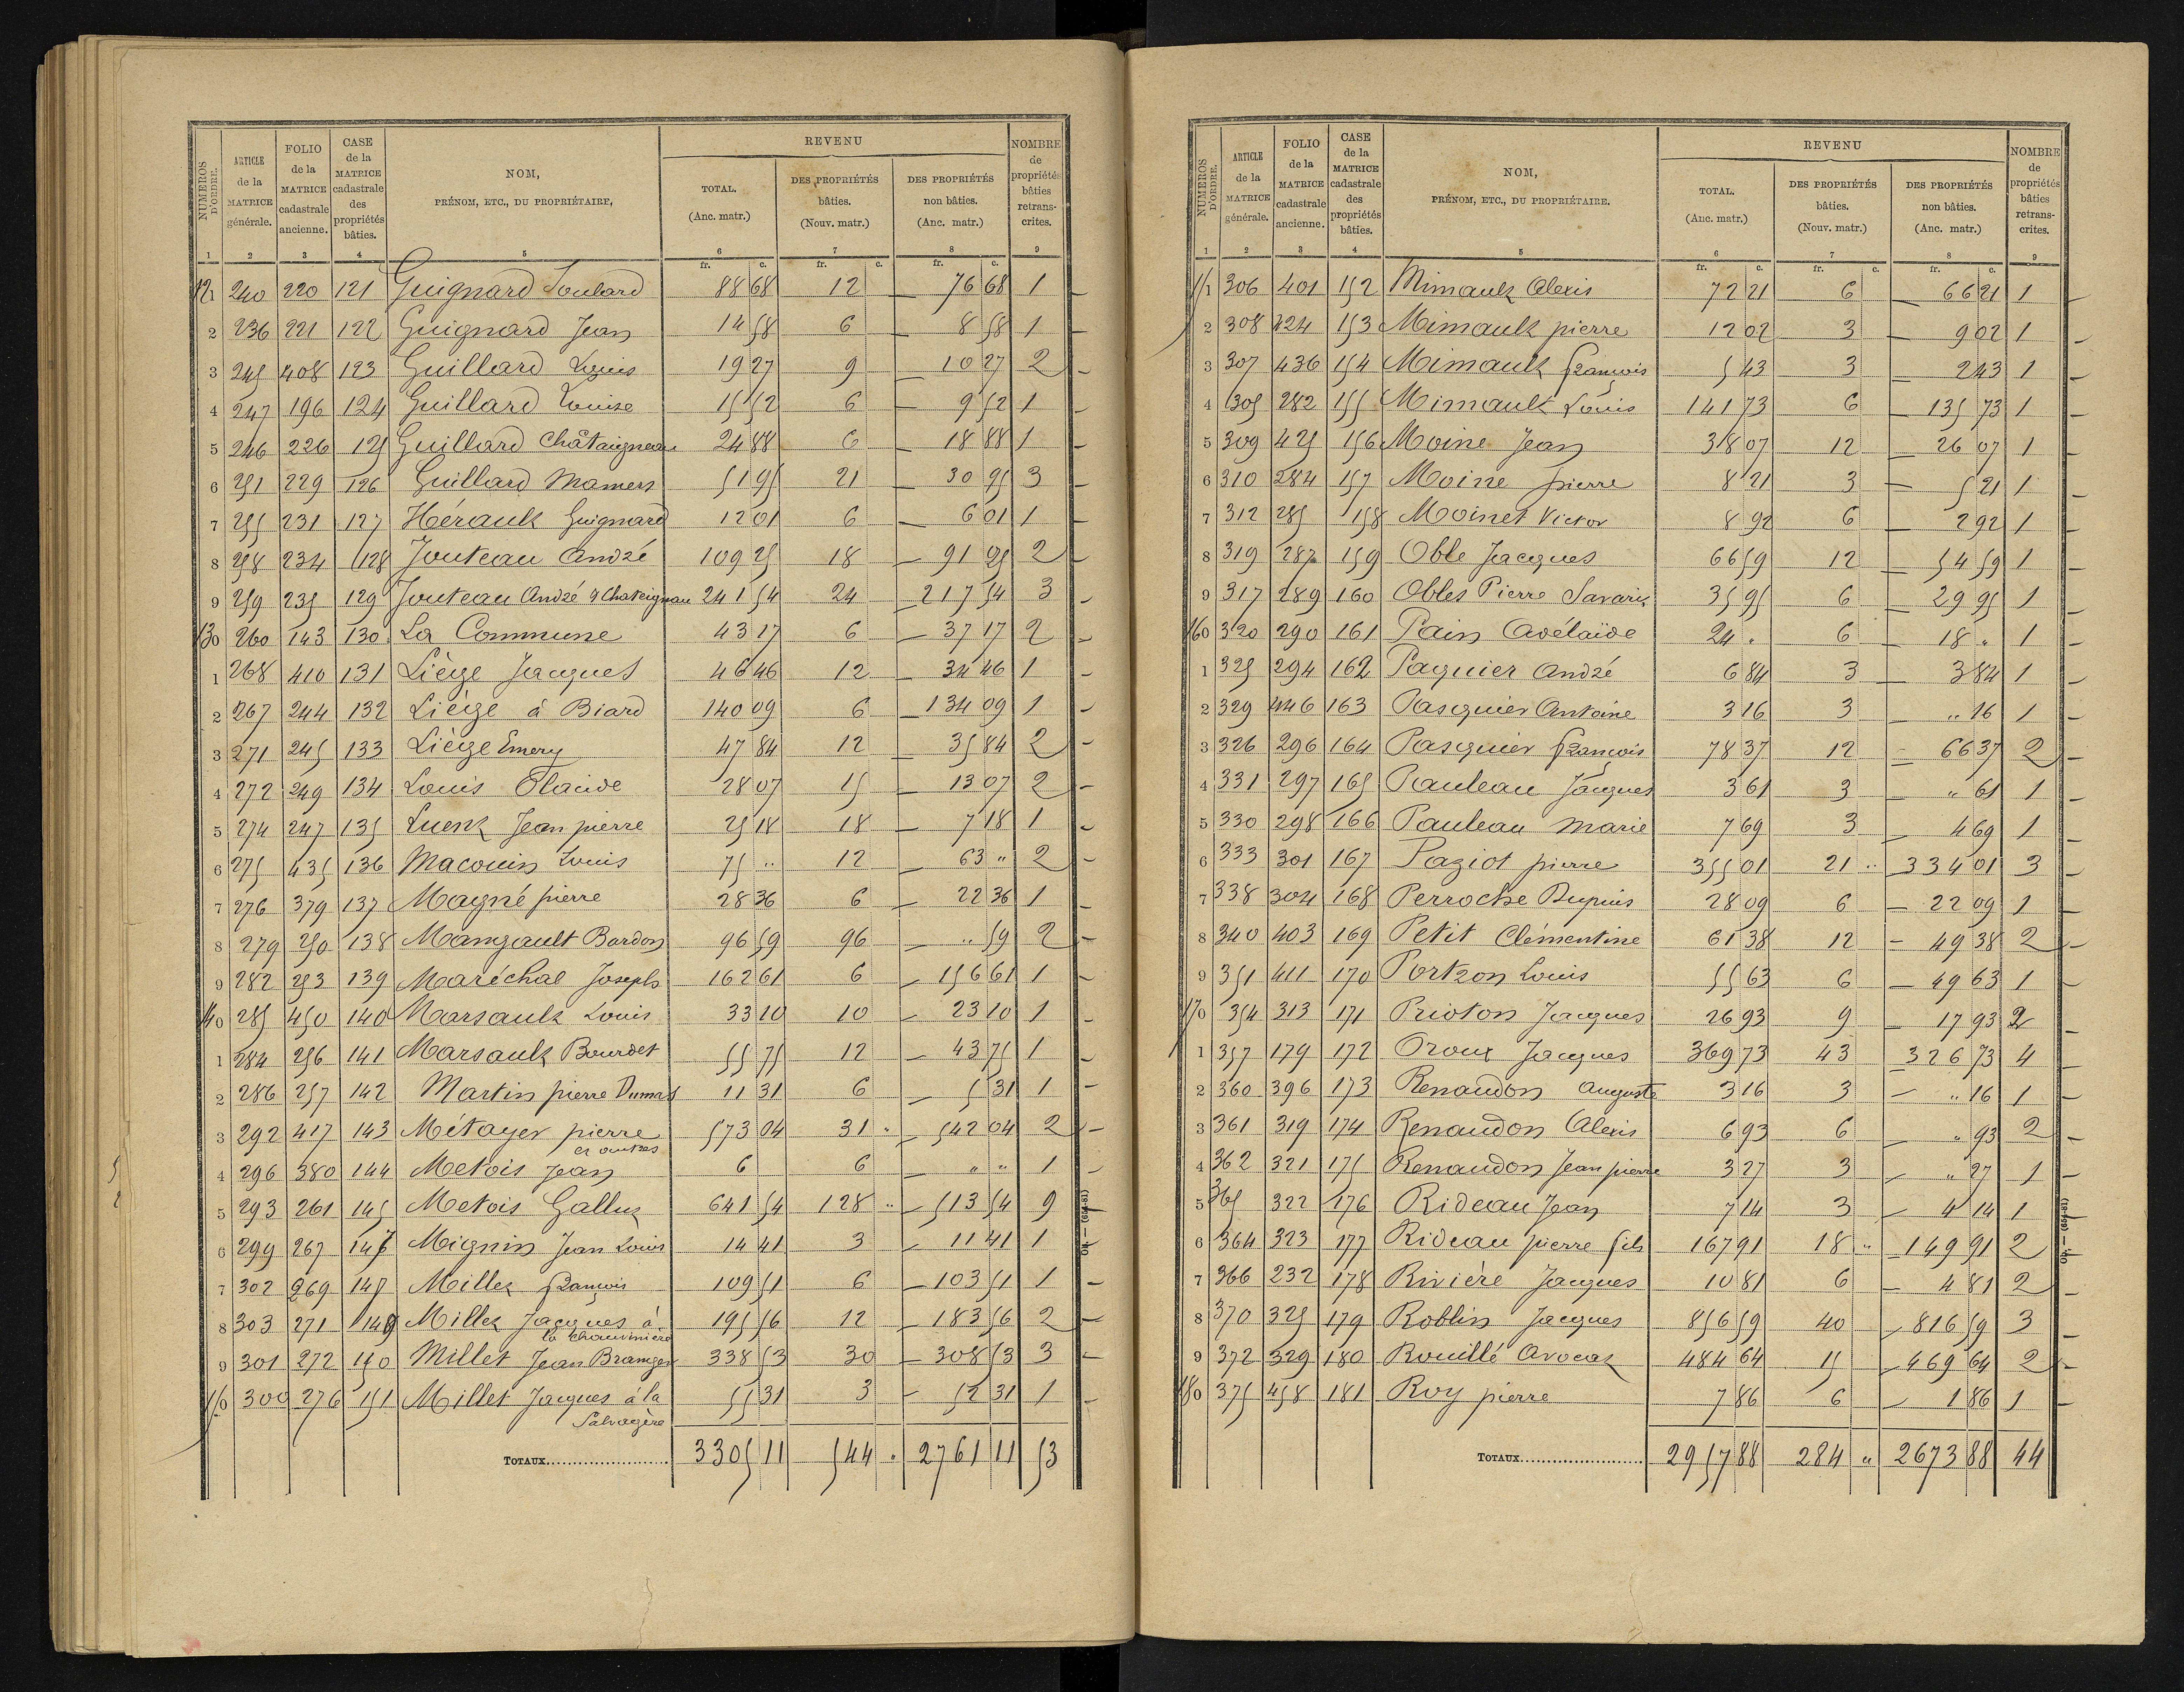 NUMÉROS D'ORDRE. | ARTICLE de la MATRICE générale. | FOLIO de la MATRICE cadastrale ancienne. | CASE de la MATRICE cadastrale des propriétés bâties. | NOM, PRÉNOM, ETC., DU PROPRIÉTAIRE, | REVENU TOTAL. (Anc. matr.) | DES PROPRIÉTÉS bâties. (Nouv. matr.) | DES PROPRIÉTÉS non bâties. (Anc. matr.) | NOMBRE de propriétés bâties retrans- crites.
1 | 2 | 3 | 4 | 5 | 6 | 7 | 8 | 9
fr. c. | fr. c. | fr. c.
121 | 240 | 220 | 121 | Guignard Soulard | 88 68 | 12 | — 76 68 | 1 —
2 | 236 | 221 | 122 | Guignard Jean | 14 58 | 6 | 8 58 | 1 —
3 | 245 | 408 | 123 | Guillard Louis | 19 27 | 9 | — 10 27 | 2 —
4 | 247 | 196 | 124 | Guillard Louise | 15 52 | 6 | — 9 52 | 1 —
5 | 246 | 226 | 125 | Guillard Châtaigneau | 24 88 | 6 | — 18 88 | 1 —
6 | 251 | 229 | 126 | Guillard Mamers | 51 95 | 21 | — 30 95 | 3 —
7 | 255 | 231 | 127 | Hérault Guignard | 12 01 | 6 | — 6 01 | 1 —
8 | 258 | 234 | 128 | Jouteau André | 109 25 | 18 | — 91 25 | 2 —
9 | 259 | 235 | 129 | Jouteau André & Chateignau | 241 54 | 24 | — 217 54 | 3 —
130 | 260 | 143 | 130 | La Commune | 43 17 | 6 | — 37 17 | 2 —
1 | 268 | 410 | 131 | Liège Jacques | 46 46 | 12 | — 34 46 | 1 —
2 | 267 | 244 | 132 | Liège à Biard | 140 09 | 6 | — 134 09 | 1 —
3 | 271 | 245 | 133 | Liège Emery | 47 84 | 12 | — 35 84 | 2 —
4 | 272 | 249 | 134 | Louis Claude | 28 07 | 15 | — 13 07 | 2 —
5 | 274 | 247 | 135 | Luent Jean pierre | 25 18 | 18 | — 7 18 | 1 —
6 | 275 | 435 | 136 | Macouin Louis | 75 " | 12 | — 63 " | 2 —
7 | 276 | 379 | 137 | Magné pierre | 28 36 | 6 | — 22 36 | 1 —
8 | 279 | 250 | 138 | Mangault Bardon | 96 59 | 96 | — " 59 | 2 —
9 | 282 | 253 | 139 | Maréchal Joseph | 162 61 | 6 | — 156 61 | 1 —
140 | 285 | 450 | 140 | Marsault Louis | 33 10 | 10 | — 23 10 | 1 —
1 | 284 | 256 | 141 | Marsault Bourdet | 55 75 | 12 | — 43 75 | 1 —
2 | 286 | 257 | 142 | Martin pierre Dumas | 11 31 | 6 | — 5 31 | 1 —
3 | 292 | 417 | 143 | Métayer pierre et autres | 573 04 | 31 " | — 542 04 | 2 —
4 | 296 | 380 | 144 | Metois Jean | 6 | 6 | — " " | 1 —
5 | 293 | 261 | 145 | Metois Gallut | 641 54 | 128 " | — 513 54 | 9 —
6 | 299 | 267 | 147 | Mignin Jean Louis | 14 41 | 3 | — 11 41 | 1 —
7 | 302 | 269 | 148 | Millet François | 109 51 | 6 | — 103 51 | 1 —
8 | 303 | 271 | 149 | Millet Jacques à la Chauvinière | 195 56 | 12 | — 183 56 | 2 —
9 | 301 | 272 | 150 | Millet Jean Branger | 338 53 | 30 | — 308 53 | 3 —
150 | 300 | 276 | 151 | Millet Jacques à la Salvagère | 55 31 | 3 | — 52 31 | 1 —
TOTAUX | 3305 11 | 544 " | 2761 11 | 53
Od. — (654-81)
NUMÉROS D'ORDRE. | ARTICLE de la MATRICE générale. | FOLIO de la MATRICE cadastrale ancienne. | CASE de la MATRICE cadastrale des propriétés bâties. | NOM, PRÉNOM, ETC., DU PROPRIÉTAIRE. | REVENU TOTAL. (Anc. matr.) | DES PROPRIÉTÉS bâties. (Nouv. matr.) | DES PROPRIÉTÉS non bâties. (Anc. matr.) | NOMBRE de propriétés bâties retrans- crites.
1 | 2 | 3 | 4 | 5 | 6 | 7 | 8 | 9
fr. c. | fr. c. | fr. c.
151 | 306 | 401 | 152 | Mimault Alexis | 72 21 | 6 | — 66 21 | 1 —
2 | 308 | 424 | 153 | Mimault pierre | 12 02 | 3 | — 9 02 | 1 —
3 | 307 | 436 | 154 | Mimault François | 5 43 | 3 | — 2 43 | 1 —
4 | 305 | 282 | 155 | Mimault Louis | 141 73 | 6 | — 135 73 | 1 —
5 | 309 | 425 | 156 | Moine Jean | 38 07 | 12 | — 26 07 | 1 —
6 | 310 | 284 | 157 | Moine pierre | 8 21 | 3 | — 5 21 | 1 —
7 | 312 | 285 | 158 | Moinet Victor | 8 92 | 6 | — 2 92 | 1 —
8 | 319 | 287 | 159 | Oble Jacques | 66 59 | 12 | — 54 59 | 1 —
9 | 317 | 289 | 160 | Obles Pierre Savarit | 35 95 | 6 | — 29 95 | 1 —
160 | 320 | 290 | 161 | Pain Adélaïde | 24 " | 6 | — 18 " | 1 —
1 | 325 | 294 | 162 | Paquier André | 6 84 | 3 | — 3 84 | 1 —
2 | 329 | 446 | 163 | Pasquier Antoine | 3 16 | 3 | — " 16 | 1 —
3 | 326 | 296 | 164 | Pasquier François | 78 37 | 12 | — 66 37 | 2 —
4 | 331 | 297 | 165 | Pauleau Jacques | 3 61 | 3 | — " 61 | 1 —
5 | 330 | 298 | 166 | Pauleau Marie | 7 69 | 3 | — 4 69 | 1 —
6 | 333 | 301 | 167 | Paziot pierre | 355 01 | 21 " | 334 01 | 3 —
7 | 338 | 304 | 168 | Perroche Dupuis | 28 09 | 6 | — 22 09 | 1 —
8 | 340 | 403 | 169 | Petit Clémentine | 61 38 | 12 | — 49 38 | 2 —
9 | 351 | 411 | 170 | Portron Louis | 55 63 | 6 | — 49 63 | 1 —
170 | 354 | 313 | 171 | Prioton Jacques | 26 93 | 9 | — 17 93 | 2 —
1 | 357 | 179 | 172 | Proux Jacques | 369 73 | 43 | — 326 73 | 4 —
2 | 360 | 396 | 173 | Renaudon Auguste | 3 16 | 3 | — " 16 | 1 —
3 | 361 | 319 | 174 | Renaudon Alexis | 6 93 | 6 | — " 93 | 2 —
4 | 362 | 321 | 175 | Renaudon Jean pierre | 3 27 | 3 | — " 27 | 1 —
5 | 365 | 322 | 176 | Rideau Jean | 7 14 | 3 | — 4 14 | 1 —
6 | 364 | 323 | 177 | Rideau pierre fils | 167 91 | 18 " | — 149 91 | 2 —
7 | 366 | 232 | 178 | Rivière Jacques | 10 81 | 6 | — 4 81 | 2 —
8 | 370 | 325 | 179 | Roblin Jacques | 856 59 | 40 | — 816 59 | 3 —
9 | 372 | 329 | 180 | Rouillé Avocat | 484 64 | 15 | — 469 64 | 2 —
180 | 375 | 458 | 181 | Roy pierre | 7 86 | 6 | — 1 86 | 1 —
TOTAUX | 2957 88 | 284 " | 2673 88 | 44
Od. — (654-81)